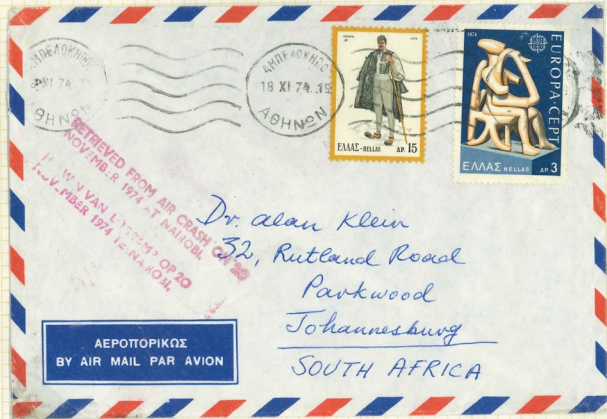 ΑΜΠΕΛΟΚΗΠΟΙ
XI 74
ΑΘΗΝΩΝ
ΑΜΠΕΛΟΚΗΠΟΙ
18 XI 74.15
ΑΘΗΝΩΝ
ΕΛΛΑΣ-HELLAS ΔΡ. 15
1974
EUROPA·CEPT
ΕΛΛΑΣ HELLAS ΔΡ. 3
RETRIEVED FROM AIR CRASH ON 20
NOVEMBER 1974 AT NAIROBI.
VAN OP 20
NOVEMBER 1974 TE NAIROBI.
Dr. Alan Klein
32, Rutland Road
Parkwood
Johannesburg
SOUTH AFRICA
ΑΕΡΟΠΟΡΙΚΩΣ
BY AIR MAIL PAR AVION